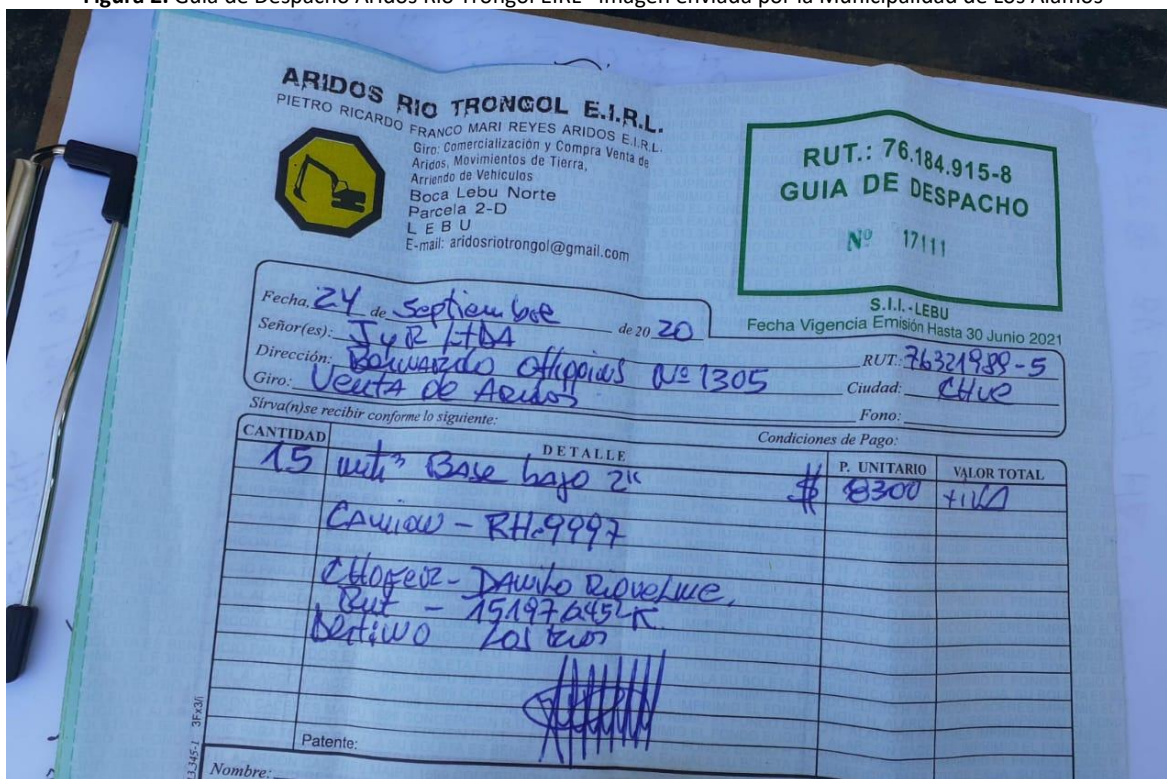 Figura 2. Guía de Despacho Áridos Río Trongol EIRL - Imagen enviada por la Municipalidad de Los Álamos
ARIDOS RIO TRONGOL E.I.R.L.
PIETRO RICARDO FRANCO MARI REYES ARIDOS E.I.R.L.
Giro: Comercialización y Compra Venta de
Aridos, Movimientos de Tierra,
Arriendo de Vehículos
Boca Lebu Norte
Parcela 2-D
LEBU
E-mail: aridosriotrongol@gmail.com
RUT.: 76.184.915-8
GUIA DE DESPACHO
Nº 17111
S.I.I.-LEBU
Fecha Vigencia Emisión Hasta 30 Junio 2021
Fecha, 24 de Septiembre de 20 20
Señor(es): JyR LTDA RUT.: 76321989-5
Dirección: Bernardo Ohiggins Nº 1305 Ciudad:
Giro: Venta de Aridos Fono:
Sirva(n)se recibir conforme lo siguiente: Condiciones de Pago:
CANTIDAD DETALLE P. UNITARIO VALOR TOTAL
15 Base bajo 2" $ 8300 +IVA
Camion - RH-9997
Chofer - Danilo Riquelme,
Rut - 15197645-K
Destino Los
Patente:
3Fx3/i
Nombre: